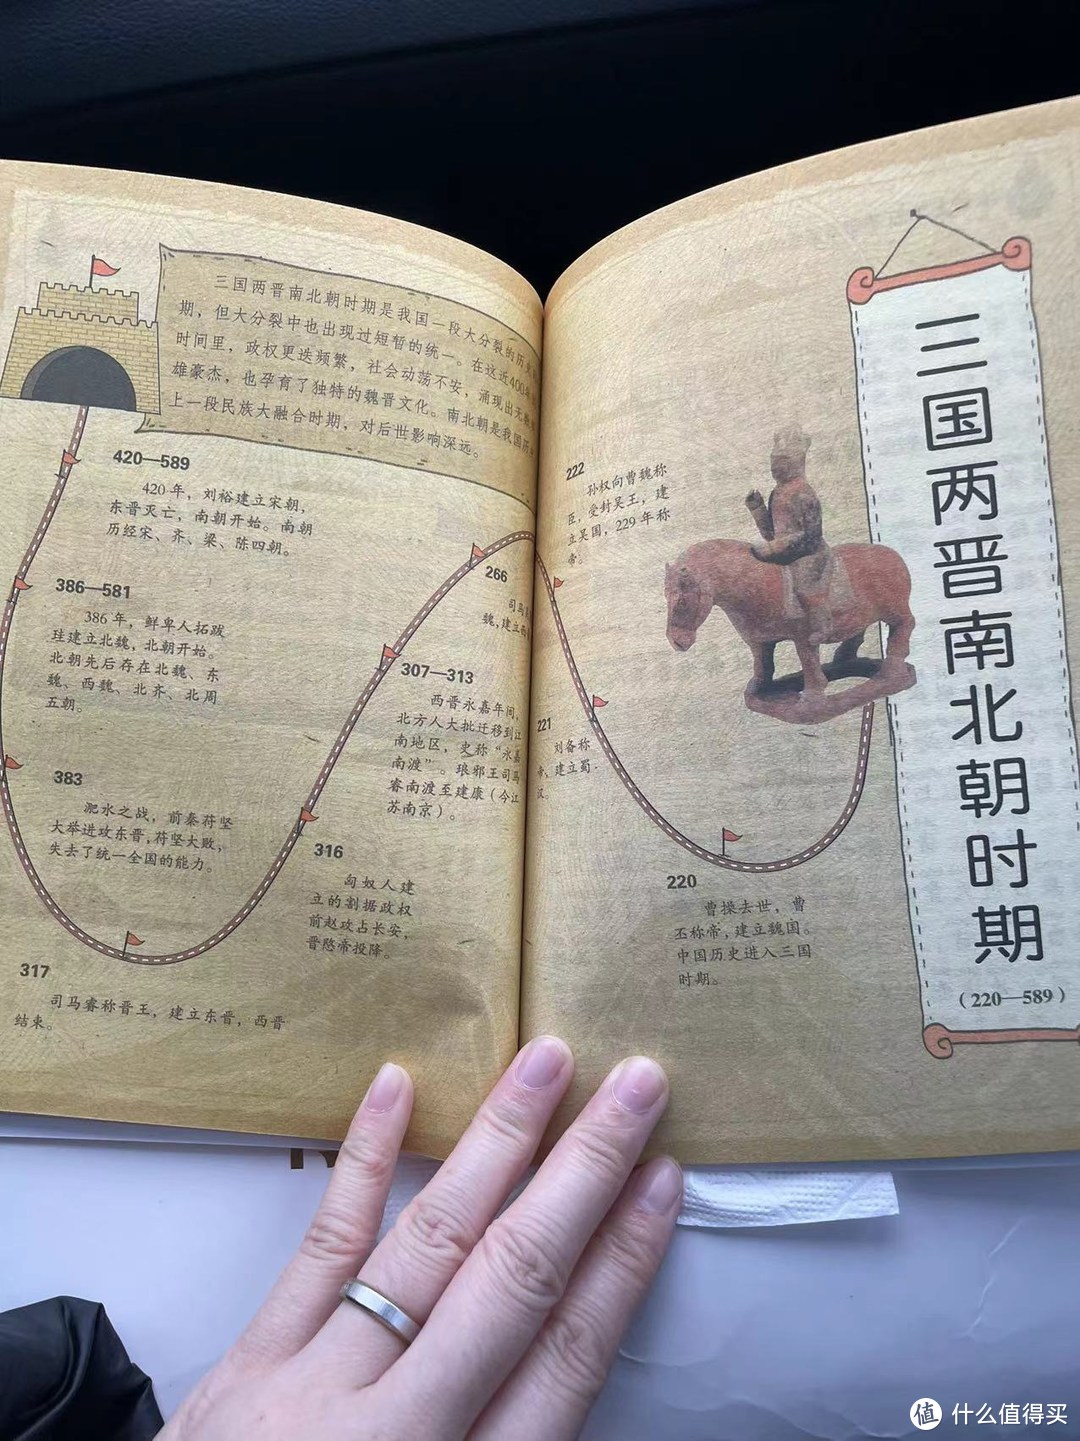 三国两晋南北朝时期是我国一段大分裂的历史
期，但大分裂中也出现过短暂的统一。在这近400年
时间里，政权更迭频繁，社会动荡不安，涌现出无
雄豪杰，也孕育了独特的魏晋文化。南北朝是我国历
上一段民族大融合时期，对后世影响深远。
420—589
420年，刘裕建立宋朝，
东晋灭亡，南朝开始。南朝
历经宋、齐、梁、陈四朝。
386—581
386年，鲜卑人拓跋
珪建立北魏，北朝开始。
北朝先后存在北魏、东
魏、西魏、北齐、北周
五朝。
383
淝水之战，前秦苻坚
大举进攻东晋，苻坚大败，
失去了统一全国的能力。
317
司马睿称晋王，建立东晋，西晋
结束。
266
司马
魏，建立
307—313
西晋永嘉年间，
北方人大批迁移到江
南地区，史称“永嘉
南渡”。琅邪王司马
睿南渡至建康（今江
苏南京）。
316
匈奴人建
立的割据政权
前赵攻占长安，
晋愍帝投降。
222
孙权向曹魏称
臣，受封吴王，建
立吴国，229年称
帝。
221
刘备称
帝，建立蜀
汉。
220
曹操去世，曹
丕称帝，建立魏国。
中国历史进入三国
时期。
三国两晋南北朝时期
（220—589）
值 什么值得买